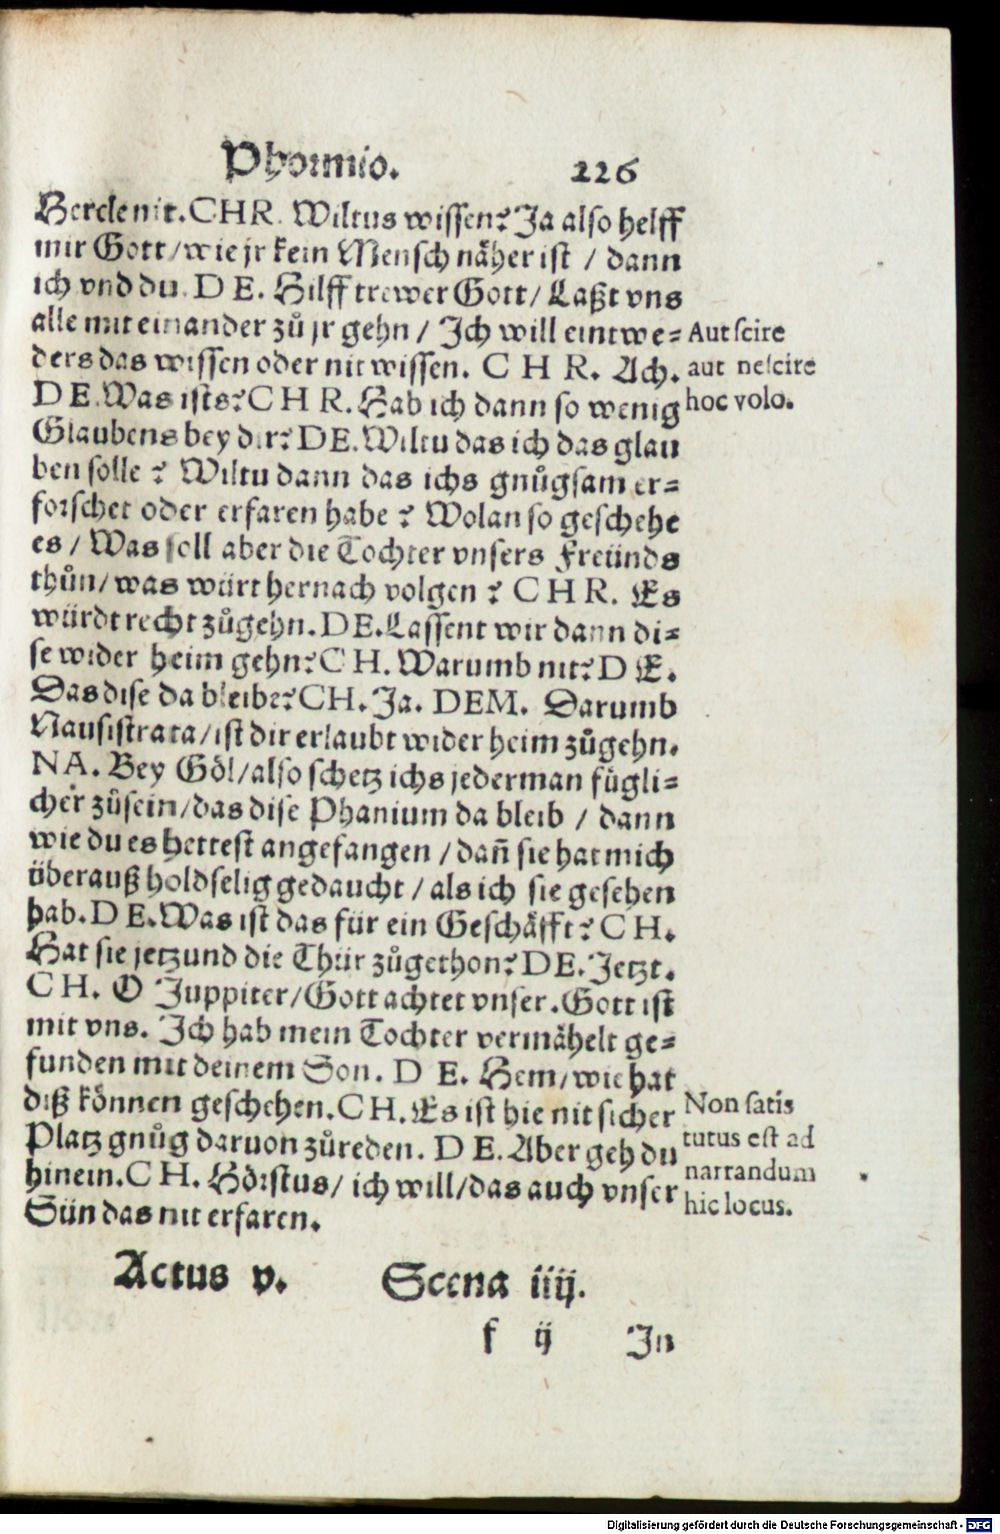 Phormio. 226
Hercle nit. CHR. Wiltus wissen? Ja also helff
mir Gott / wie jr kein Mensch näher ist / dann
ich vnd du. DE. Hilff trewer Gott / Laßt vns
alle mit einander zů jr gehn / Ich will eintwe=
ders das wissen oder nit wissen. CHR. Ach.
DE. Was ists? CHR. Hab ich dann so wenig
Glaubens bey dir? DE. Wiltu das ich das glau
ben solle? Wiltu dann das ichs gnůgsam er=
forschet oder erfaren habe? Wolan so geschehe
es / Was soll aber die Tochter vnsers Freünds
thůn / was würt hernach volgen? CHR. Es
würdt recht zůgehn. DE. Lassent wir dann di=
se wider heim gehn? CH. Warumb nit? DE.
Das dise da bleibe? CH. Ja. DEM. Darumb
Nausistrata / ist dir erlaubt wider heim zůgehn.
NA. Bey Göl / also schetz ichs jederman fůgli=
cher zůsein / das dise Phanium da bleib / dann
wie du es hettest angefangen / dañ sie hat mich
überauß holdselig gedaucht / als ich sie gesehen
hab. DE. Was ist das für ein Geschäfft? CH.
Hat sie jetzund die Thür zůgethon? DE. Jetzt.
CH. O Juppiter / Gott achtet vnser. Gott ist
mit vns. Ich hab mein Tochter vermähelt ge=
funden mit deinem Son. DE. Hem / wie hat
diß können geschehen. CH. Es ist hie nit sicher
Platz gnůg daruon zůreden. DE. Aber geh du
hinein. CH. Hörstus / ich will / das auch vnser
Sün das nit erfaren.
Aut scire
aut nescire
hoc volo.
Non satis
tutus est ad
narrandum
hic locus.
Actus v. Scena iiij.
f ij In
Digitalisierung gefördert durch die Deutsche Forschungsgemeinschaft - DFG